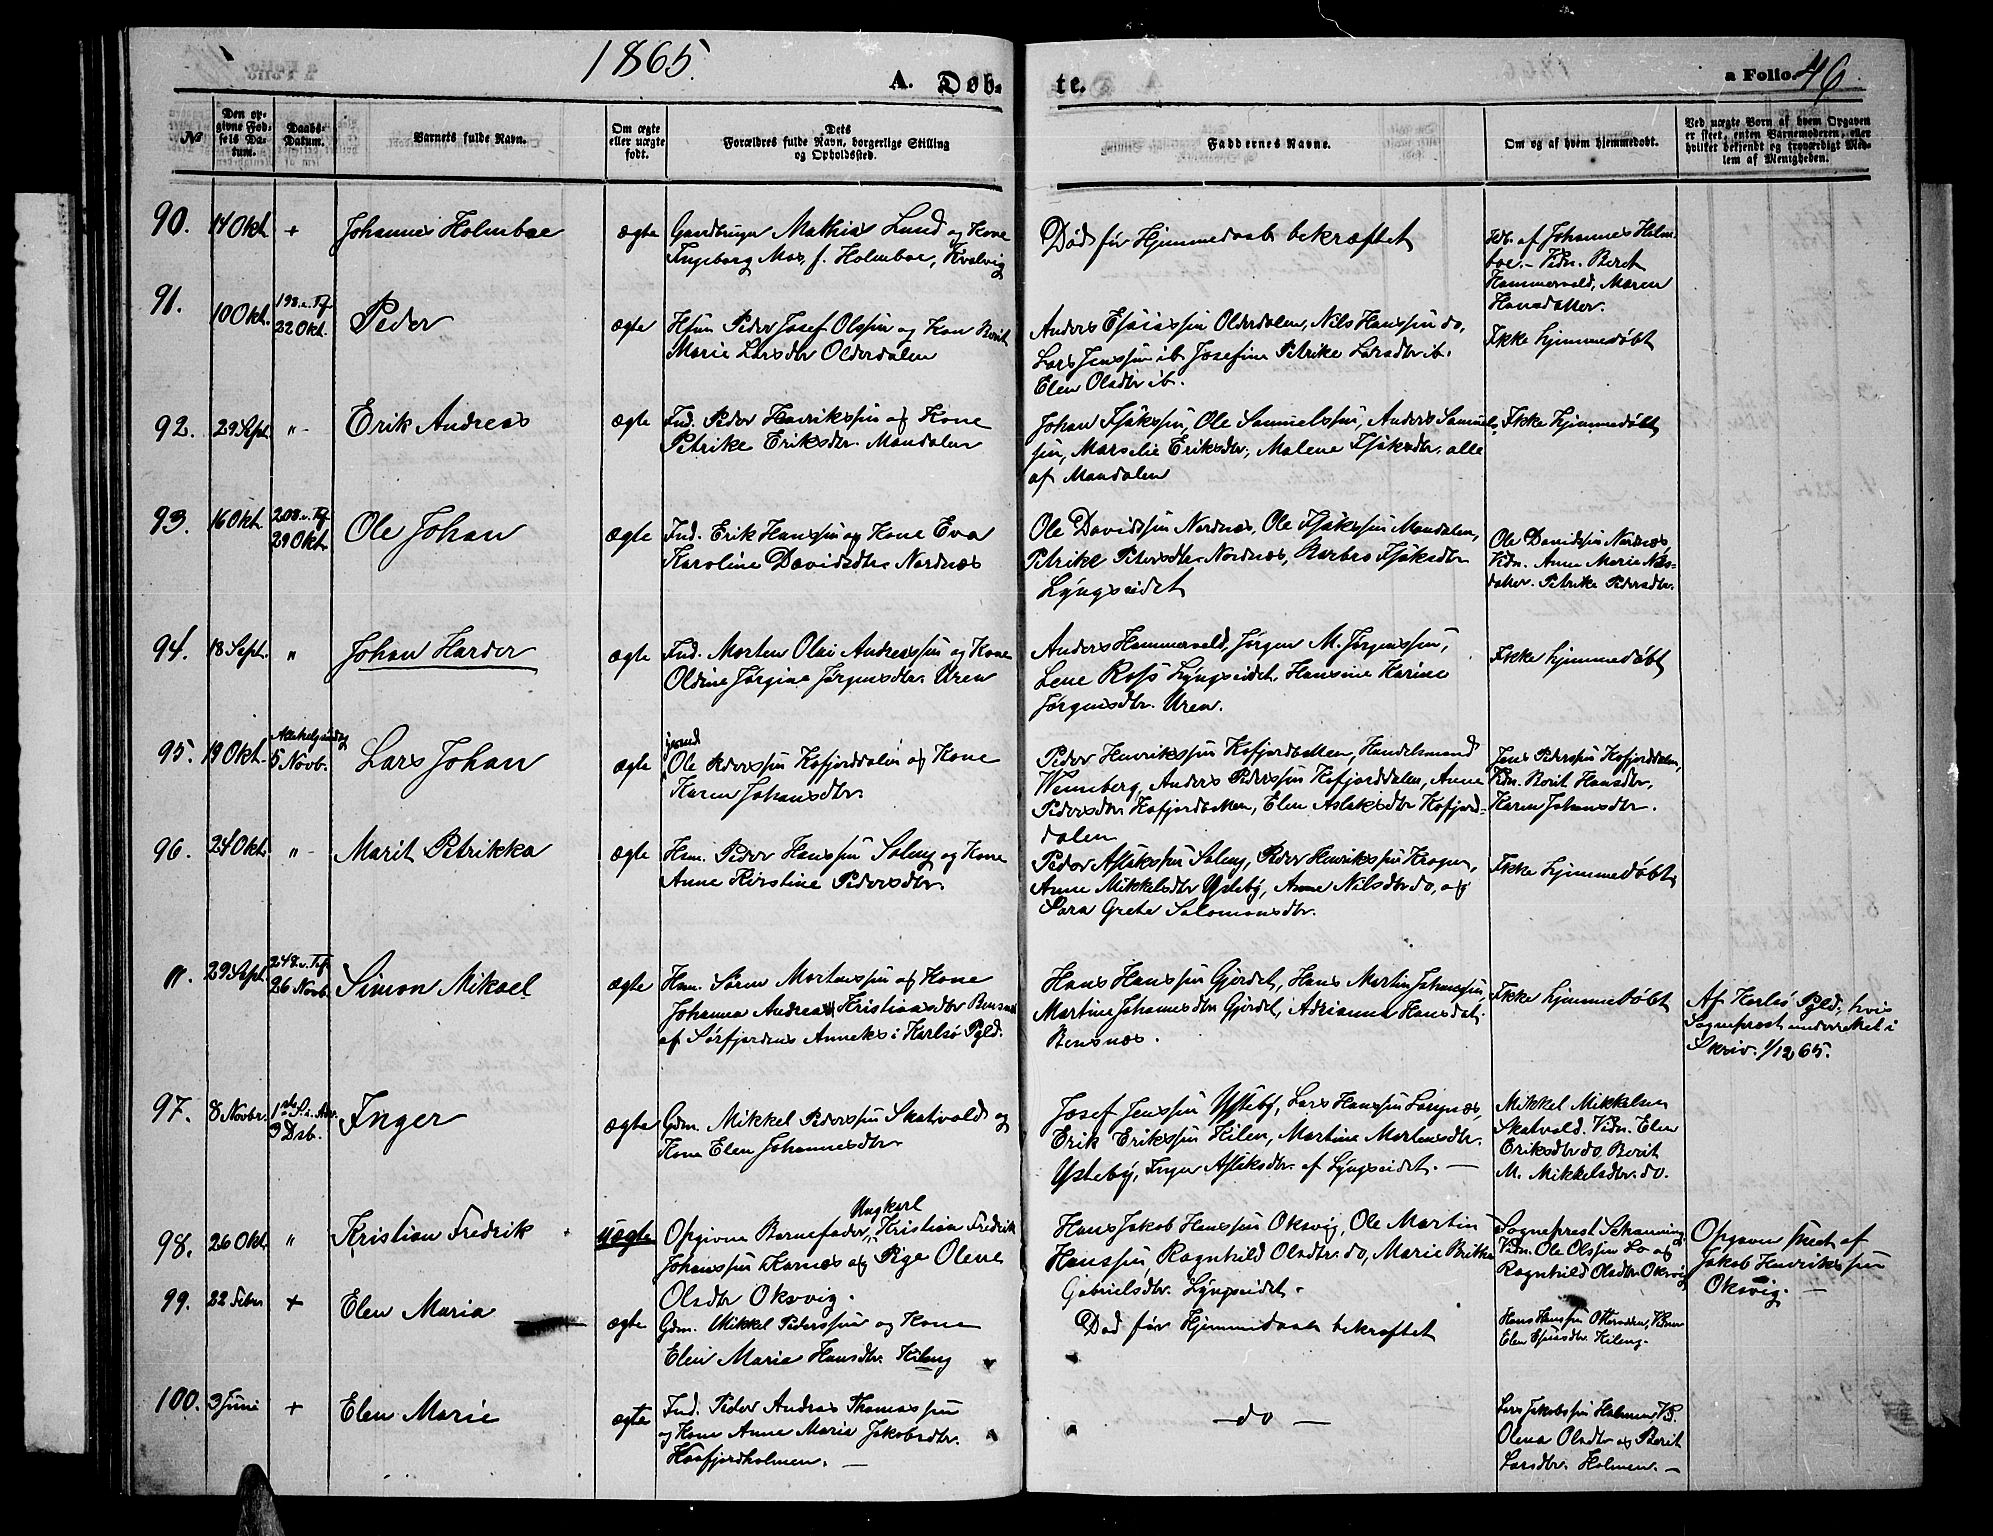 1865.
A. Døb-
te.
a Folio. 46
№
Den op-
givne Fød-
sels Da-
tum.
Daabs-
Datum.
Barnets fulde Navn.
Om ægte
eller uægte
født.
Dets
Forældres fulde Navn, borgerlige Stilling
og Opholdssted.
Faddernes Navne.
Om og af hvem hjemmedøbt.
Ved uægte Børn af hvem Opgaven
er skeet, enten Barnemoderen, eller
hvilket bekjendt og troværdigt Med-
lem af Menigheden.
90. 14 Okt. + Johannes Holmboe ægte Gaardbruger Mathias Lund og Kone
Ingeborg Mar. f. Holmboe, Kvalvig
Død før Hjemmedaab bekræftet
Hdb. af Johannes Holm-
boe. - Vidn. Beret
Hammervold, Maren
Hansdatter.
91. 10 Okt. 19 S. e. Tf.
22 Okt. Peder ægte Hsm Peder Josef Olssøn og Kon Berit
Marie Larsdtr Olderdalen
Anders Esaiassøn Olderdalen, Nils Hanssøn do,
Lars Jenssøn ib. Josefine Petrike Larsdtr ib.
Elen Olsdtr ib.
Ikke hjemmedøbt
92. 29 Sept. " - Erik Andreas ægte Ind. Peder Henrikssøn og Kone
Petrike Eriksdtr. Mandalen
Johan Isakssøn, Ole Samuelssøn, Anders Samuels-
søn, Marselie Eriksdtr, Malene Isaksdtr. alle
af Mandalen
Ikke hjemmedøbt
93. 16 Okt. 20 S. e. Tf.
29 Okt. Ole Johan ægte Ind. Erik Hanssøn og Kone Eva
Karoline Davidsdtr Nordnæs
Ole Davidssøn Nordnæs, Ole Isakssøn Mandalen,
Petrike Petersdtr Nordnæs, Barbro Isaksdtr
Lyngseidet
Ole Davidssøn Nordnæs,
Vidn. Anne Marie Nils-
datter. Petrike Pedersdtr.
94. 18 Sept. " Johan Harder ægte Ind. Morten Olai Andreassøn og Kone
Oldine Jørgine Jørgensdtr. Uren
Anders Hammervold, Jørgen M. Jørgenssøn,
Lene Ross Lyngseidet, Hansine Karine
Jørgensdtr. Uren.
Ikke hjemmedøbt
95. 19 Okt. Allehelgensdag
5 Novb. Lars Johan ægte
Ole Pederssøn Kofjorddalen og Kone
Karen Johansdtr.
Peder Henrikssøn Kofjordbotten, Handelsmand
Wenneberg, Anders Pederssøn Kofjorddalen, Anne
Pedersdtr Kofjordbotten, Elen Aslaksdtr Kofjord-
dalen
Jens Pederssøn Kofjorddalen,
Vidn. Berit Hansdtr,
Karen Johansdtr.
96. 24 Okt. " - Marit Petrikka ægte Hsm. Peder Hanssøn Soleng og Kone
Anne Kirstine Pedersdtr.
Peder Aslakssøn Soleng, Peder Henrikssøn Kragen,
Anne Mikkelsdtr Ysteby, Anne Nilsdtr do, og
Sara Grete Salomonsdtr.
Ikke hjemmedøbt
". 29 Sept. 24 S. e. Tf.
26 Novb. Simon Mikael ægte Hsm. Søren Mortenssøn og Kone
Johanna Andrea Kristiansdtr Bensnæs
af Sørfjordens Anneks i Karlsø Pgld.
Hans Hanssøn Gjerdet, Hans Martin Johanssøn,
Martine Johannesdtr Gjerdet, Adrianna Hansdat.
Bensnæs.
Ikke hjemmedøbt
Af Karlsø Pgld, hvis
Sogneprest underrettet i
Skriv. 1/12 65.
97. 8 Novbr. 1ste S. i Adv.
3 Dsb. Inger ægte Gdm. Mikkel Pederssøn Skatvold og
Kone Elen Johannesdtr
Josef Jenssøn Ysteby, Lars Hanssøn Langnæs,
Erik Erikssøn Kilen, Martine Mortensdtr.
Ysteby, Inger Aslaksdtr. af Lyngseidet. -
Mikkel Mikkelsen
Skatvold. Vidn. Elen
Eriksdtr do, Berit
M. Mikkelsdtr. do.
98. 26 Okt. " Kristian Fredrik uægte Opgiven Barnefader, Ungkarl Kristian Fredrik
Johanssøn Karnæs og Pige Olene
Olsdtr Oksvig.
Hans Jakob Hanssøn Oksvig, Ole Martin
Hanssøn, Ragnhild Olsdtr. do, Marie Britha
Gabrielsdtr. Lyngseidet.
Sogneprest Schanning
Vidn. Ole Olssøn Lo og
Ragnhild Olsdtr Oksvig
Opgaven skeet af
Jakob Henrikssøn
Oksvig. -
99. 22 Febr + Elen Maria ægte Gdm. Mikkel Pederssøn og Kone
Elen Maria Hansdtr. Kileng
Død før Hjemmedaab bekræftet
Hans Hanssøn Otteraden,
Elen Esaiasdtr. Kileng.
100. 3 Juni + Elen Marie ægte Ind. Peder Andreas Thomassøn
og Kone Anne Marie Jakobsdtr.
Kaafjordholmen. -
- do -
Lars Jakobssøn Holmen,
Olena Olsdtr og Berit
Larsdtr. Holmen. -